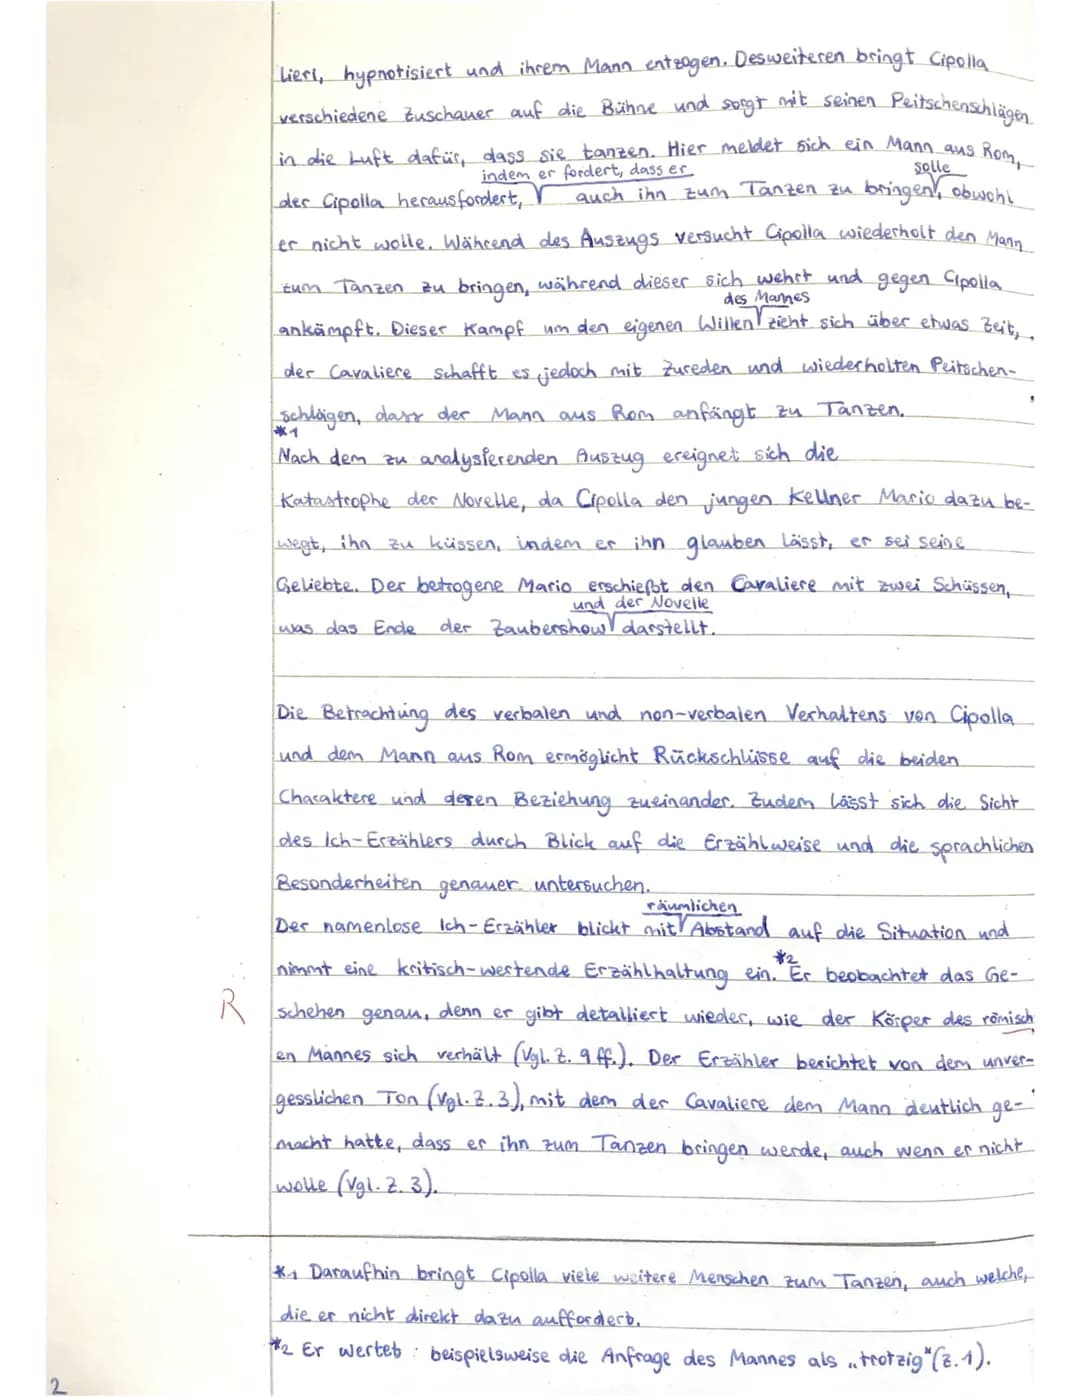 lieri, hypnotisiert und ihrem Mann entzogen. Desweiteren bringt Cipolla
verschiedene Zuschauer auf die Bühne und sorgt mit seinen Peitschenschlägen
in die Luft dafür, dass sie tanzen. Hier meldet sich ein Mann aus Rom,
indem er fordert, dass er solle
der Cipolla herausfordert, √ auch ihn zum Tanzen zu bringen√, obwohl
er nicht wolle. Während des Auszugs versucht Cipolla wiederholt den Mann
zum Tanzen zu bringen, während dieser sich wehrt und gegen Cipolla
des Mannes
ankämpft. Dieser Kampf um den eigenen Willen√ zieht sich über etwas Zeit,
der Cavaliere schafft es jedoch mit Zureden und wiederholten Peitschen-
schlägen, dass der Mann aus Rom anfängt zu Tanzen.
*1
Nach dem zu analysierenden Auszug ereignet sich die
Katastrophe der Novelle, da Cipolla den jungen Kellner Mario dazu be-
wegt, ihn zu küssen, indem er ihn glauben lässt, er sei seine
Geliebte. Der betrogene Mario erschießt den Cavaliere mit zwei Schüssen,
und der Novelle
was das Ende der Zaubershow√ darstellt.
Die Betrachtung des verbalen und non-verbalen Verhaltens von Cipolla
und dem Mann aus Rom ermöglicht Rückschlüsse auf die beiden
Charaktere und deren Beziehung zueinander. Zudem lässt sich die Sicht
des Ich-Erzählers durch Blick auf die Erzählweise und die sprachlichen
Besonderheiten genauer untersuchen.
räumlichen
Der namenlose Ich-Erzähler blickt mit√ Abstand auf die Situation und
*2
nimmt eine kritisch-wertende Erzählhaltung ein. Er beobachtet das Ge-
R schehen genau, denn er gibt detalliert wieder, wie der Körper des römisch
en Mannes sich verhält (Vgl. Z. 9 ff.). Der Erzähler berichtet von dem unver-
gesslichen Ton (Vgl. Z. 3), mit dem der Cavaliere dem Mann deutlich ge-
macht hatte, dass er ihn zum Tanzen bringen werde, auch wenn er nicht
wolle (Vgl. Z. 3).
*1 Daraufhin bringt Cipolla viele weitere Menschen zum Tanzen, auch welche,
die er nicht direkt dazu auffordert.
*2 Er wertet : beispielsweise die Anfrage des Mannes als „trotzig" (Z. 1).
2